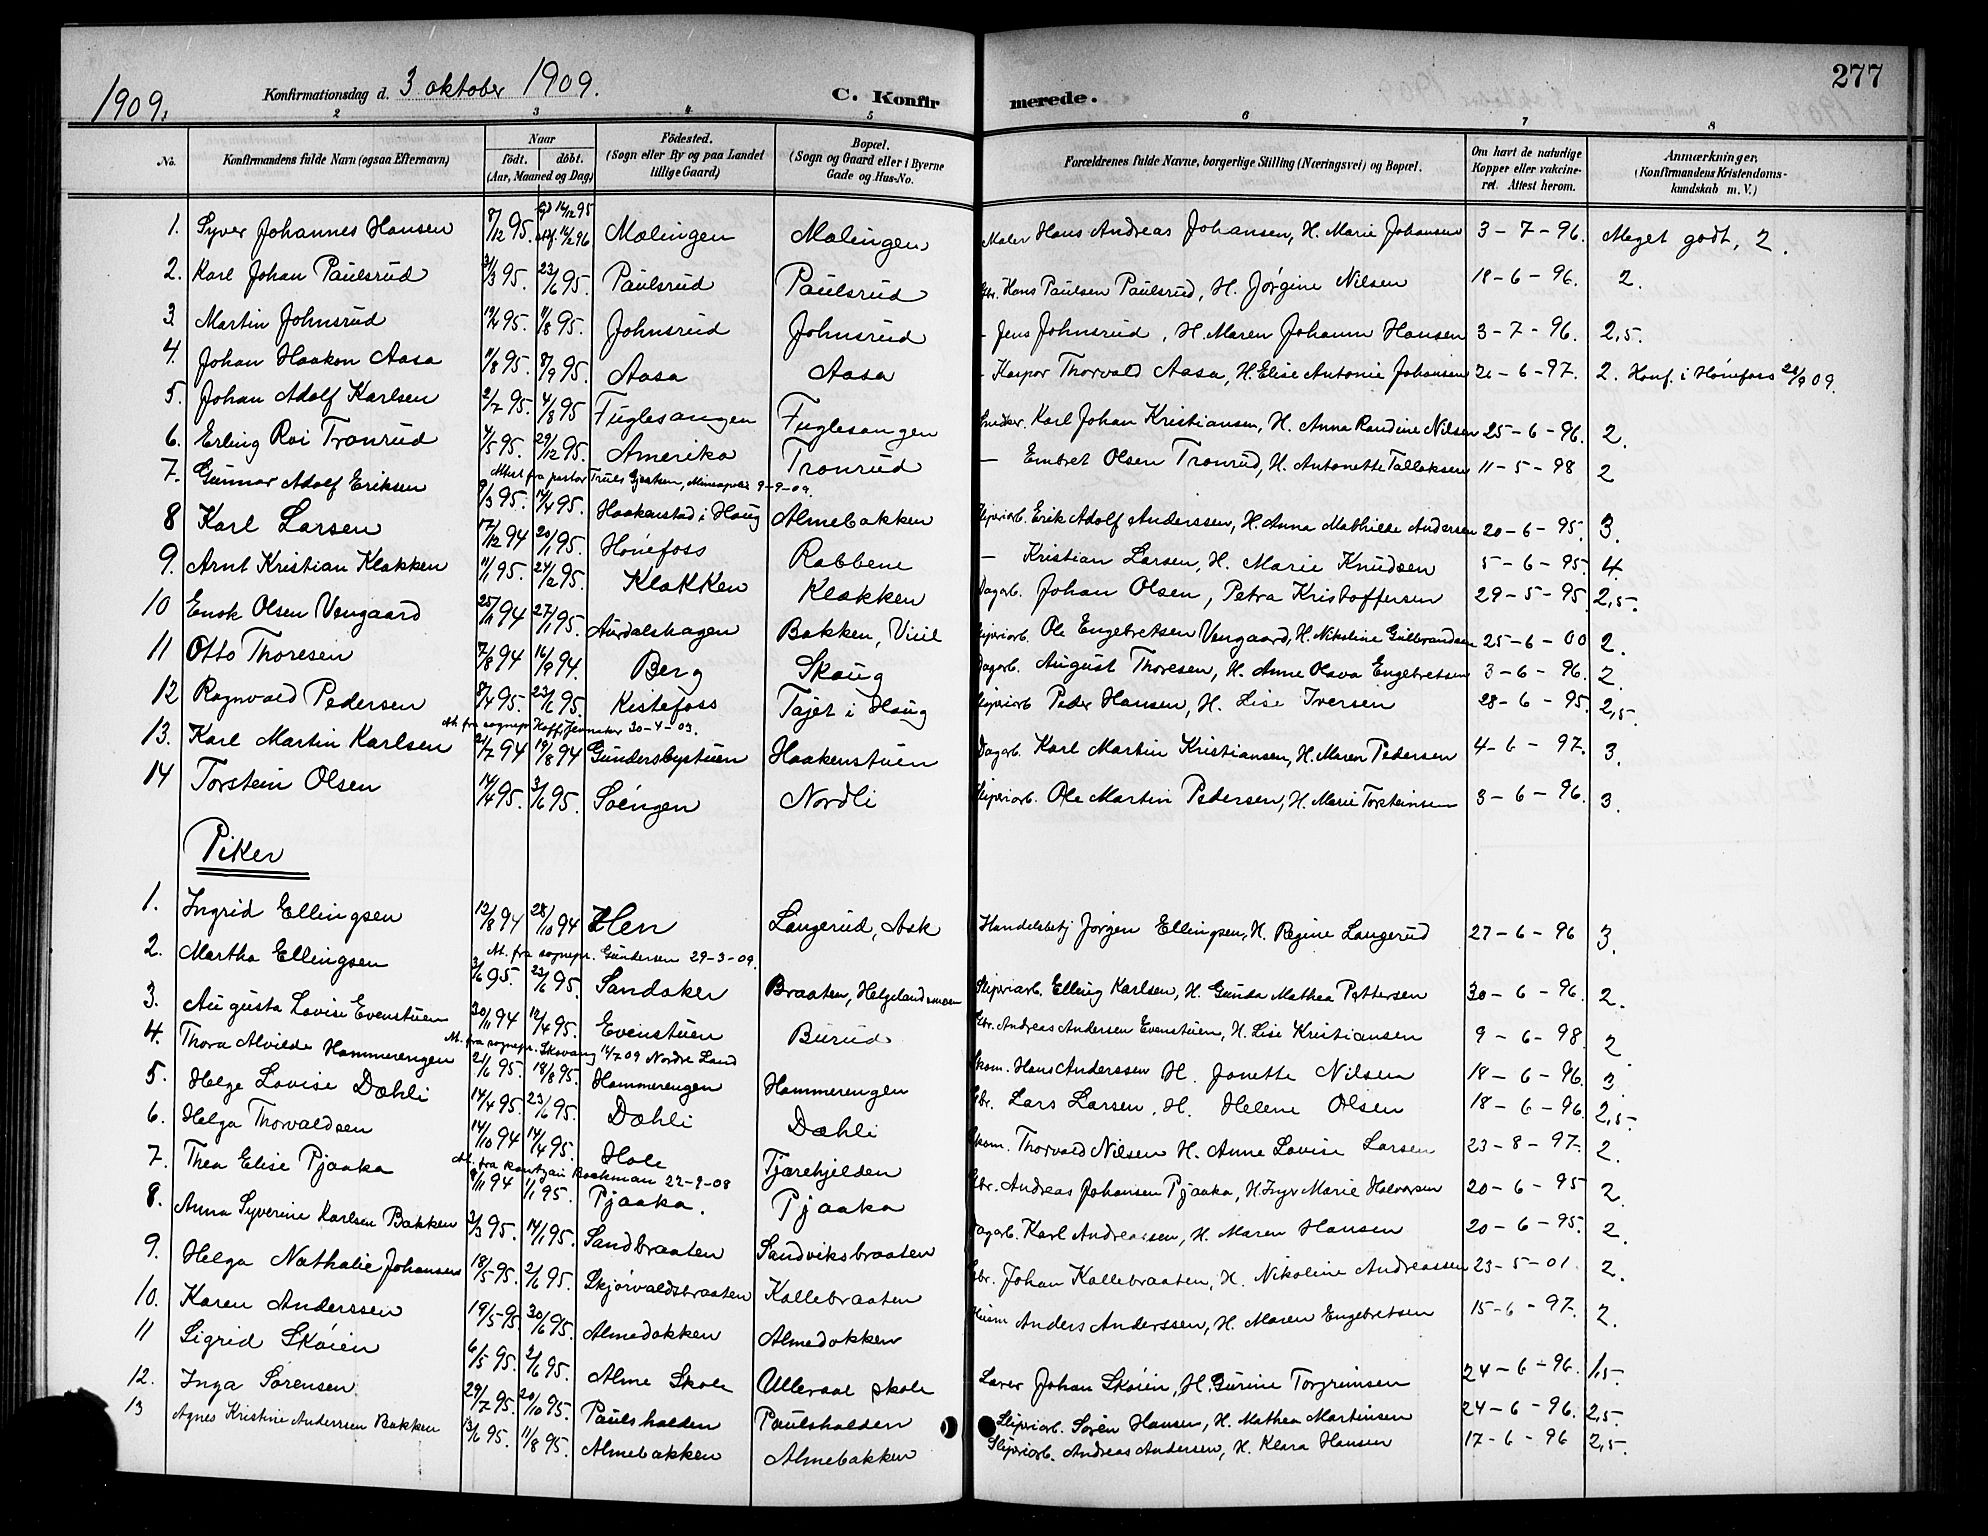 1909.
Konfirmationsdag d. 3 oktober 1909.
C. Konfirmerede.
277
2 3 4 5 6 7 8
No. | Konfirmandens fulde Navn (ogsaa Efternavn) | Naar födt. döbt. (Aar, Maaned og Dag) | Födested. (Sogn eller By og paa Landet tillige Gaard) | Bopæl. (Sogn og Gaard eller i Byerne Gade og Hus-No. | Forældrenes fulde Navne, borgerlige Stilling (Næringsvei) og Bopæl. | Om havt de naturlige Kopper eller vakcineret. Attest herom. | Anmærkninger. (Konfirmandens Kristendomskundskab m. V.)
1. Syver Johannes Hansen 8/12 95. 16/12 95 16/2 96 Malingen Malingen Maler Hans Andreas Johansen, H. Marie Johansen 3-7-96. Meget godt, 2.
2. Karl Johan Paulsrud 31/3 95. 23/6 95. Paulsrud Paulsrud Gbr. Hans Paulsen Paulsrud, H. Jørgine Nilsen 18-6-96. 2.
3 Martin Johnsrud 19/4 95. 11/8 95. Johnsrud Johnsrud - Jens Johnsrud, H. Maren Johanne Hansen 3-7-96. 2,5.
4. Johan Haakon Aasa 11/8 95. 8/9 95. Aasa Aasa - Kaspar Thorvald Aasa, H. Elise Antonie Johansen 26-6-97. 2. Konf. i Hönefoss 26/9 09.
5. Johan Adolf Karlsen 2/7 95. 4/8 95 Fuglesangen Fuglesangen Snedker Karl Johan Kristiansen, H. Anna Randine Nilsen 25-6-96. 2.
6. Erling Roi Tronrud 4/5 95. 29/12 95. Amerika Tronrud — Embret Olsen Tronrud, H. Antonette Tallaksen 11-5-98 2
Attest fra pastor Truls Gjesken, Mineapolis 9-9-09.
7. Gunnar Adolf Eriksen 9/3 95. 14/4 95. Haakenstad i Haug Almebakken Sliperiarb. Erik Adolf Anderssen, H. Anna Mathilde Andersen 20-6-95. 3.
8 Karl Larsen 17/12 94 20/1 95. Hönefoss Rabbene — Kristian Larsen, H. Marie Knudsen 5-6-95. 4.
9. Arnt Kristian Klakken 11/1 95. 24/2 95. Klakken Klakken Dagarb. Johan Olsen, Petra Kristoffersen 29-5-95. 2,5.
10 Enok Olsen Vengaard 25/11 94 27/1 95. Aurdalshagen Bakken, Viul Sliperiarb. Ole Engebretsen Vengaard, H. Nikoline Gulbrandsen 25-6-00 2.
11 Otto Thoresen 7/8 94 16/9 94. Berg Skaug Dagarb. August Thoresen, H. Anne Olava Engebretsen 3-6-96. 2.
12 Ragnvald Pedersen 8/4 95. 23/6 95. Kistefoss Tajet i Haug Sliperiarb. Peder Hansen, H. Lise Iversen 28-6-95. 2,5.
At. fra sognepr. Hoff, Jevnaker 30-4-03.
13. Karl Martin Karlsen 21/7 94 19/8 94 Gundersbystuen Haakenstuen Dagarb. Karl Martin Kristiansen, H. Maren Pedersen 4-6-97. 3.
14 Torstein Olsen 14/4 95. 3/6 95. Soengen Nordli Sliperiarb. Ole Martin Pedersen, H. Marie Torsteinsen 3-6-96. 3.
Piker
1. Ingrid Ellingsen 12/8 94 28/10 94 Hen Langerud, Ask Handelsbetj Jørgen Ellingsen, H. Regine Langerud 27-6-96 3.
At. fra sognepr. Gundersen 29-3-09.
2. Martha Ellingsen 3/6 95. 23/6 95. Sandaker Braaten, Helgelandsmoen Sliperiarb. Elling Karlsen, H. Gunda Mathea Pettersen 30-6-96. 2.
3. Augusta Lovise Evenstuen 30/11 94 12/4 95. Evenstuen Burud Gbr. Andreas Andersen Evenstuen, H. Lise Kristiansen 9-6-98. 2
At. fra sognepr. Skavang 14/7 09 Nordre Land
4. Thora Alvilde Hammerengen 21/6 95. 18/8 95. Hammerengen Hammerengen Skom. Hans Anderssen H. Jonette Nilsen 18-6-96. 3
5. Helge Lovise Dæhli 14/4 95. 23/6 95. Dæhli Dæhli Gbr. Lars Larsen, H. Helene Olsen 18-6-96. 2,5.
6. Helga Thorvaldsen 14/10 94 14/4 95. Hole Tjærehjelden Skom. Thorvald Nilsen H. Anne Lovise Larsen 23-8-97. 2.
At. fra kantzau Baakman 22-9-08
7. Thea Elise Pjaaka 8/11 94 1/1 95. Pjaaka. Pjaaka Gbr. Andreas Johansen Pjaaka, H. Ingr Marie Halvorsen 20-6-95 2.
8. Anna Syverine Karlsen Bakken 3/3 95. 14/1 95. Sandbraaten Sandviksbraaten Dagarb. Karl Andreassen, H. Maren Hansen 20-6-95. 2.
9. Helga Nathalie Johansen 18/5 95. 2/6 95. Skjørvaldsbraaten Kallebraaten Gbr. Johan Kallebraaten, H. Nikoline Andreassen 23-5-01. 2.
10. Karen Anderssen 19/5-95 30/6 95. Almedokken Almedokken Husm Anders Anderssen, H. Maren Engebretsen 15-6-97. 2.
11 Sigrid Skøien 6/5 95. 2/6 95. Alme Skole Ulleraal skole Lærer Johan Skøien, H. Gurine Torgrimsen 24-6-96. 1,5.
12. Inga Sørensen 29/7 95. 20/10 95. Paulshalden Paulshalden Sliperiarb. Søren Hansen, H. Mathea Martinsen 24-6-96. 2,5.
13 Agnes Kristine Anderssen Bakken 13/6 95. 11/8 95. Almebakken Almebakken Sliperiarb. Andreas Andersen, H. Klara Hansen 17-6-96 2,5.